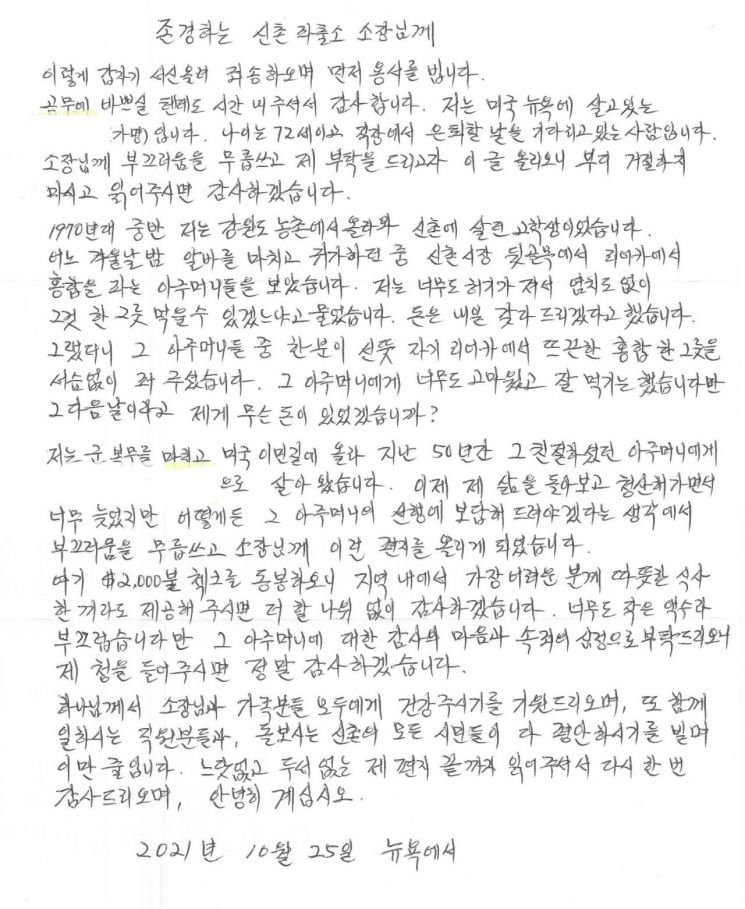 존경하는 신촌 파출소 소장님께
이렇게 갑자기 서신올려 죄송하오며 먼저 용서를 빕니다.
공무에 바쁘실 텐데도 시간 내주셔서 감사합니다. 저는 미국 뉴욕에 살고있는
가명) 입니다. 나이는 72세이고 직장에서 은퇴할 날을 기다리고 있는 사람입니다.
소장님께 부끄러움을 무릅쓰고 제 부탁을 드리고자 이 글 올리오니 부디 거절하지
마시고 읽어주시면 감사하겠습니다.
1970년대 중반 저는 강원도 농촌에서 올라와 신촌에 살던 고학생이었습니다.
어느 겨울날 밤 알바를 마치고 귀가하던 중 신촌시장 뒷골목에서 리어카에서
홍합을 파는 아주머니들을 보았습니다. 저는 너무도 허기가 져서 염치도 없이
그것 한 그릇 먹을수 있겠느냐고 물었습니다. 돈은 내일 갖다 드리겠다고 했습니다.
그랬더니 그 아주머니들 중 한분이 선뜻 자기 리어카에서 뜨끈한 홍합 한 그릇을
서슴없이 퍼 주셨습니다. 그 아주머니에게 너무도 고마웠고 잘 먹기는 했습니다만
그 다음날이라고 제게 무슨 돈이 있었겠습니까?
저는 군 복무를 마치고 미국 이민길에 올라 지난 50년간 그 친절하셨던 아주머니에게
으로 살아 왔습니다. 이제 제 삶을 돌아보고 청산해가면서
너무 늦었지만 어떻게든 그 아주머니의 선행에 보답해 드려야겠다는 생각에서
부끄러움을 무릅쓰고 소장님께 이런 편지를 올리게 되었습니다.
여기 $2,000불 첵크를 동봉하오니 지역 내에서 가장 어려운 분께 따뜻한 식사
한 끼라도 제공해 주시면 더 할 나위 없이 감사하겠습니다. 너무도 작은 액수라
부끄럽습니다만 그 아주머니에 대한 감사의 마음과 속죄의 심정으로 부탁드리오니
제 청을 들어주시면 정말 감사하겠습니다.
하나님께서 소장님과 가족분들 모두에게 건강주시기를 기원드리오며, 또 함께
일하시는 직원분들과, 돌보시는 신촌의 모든 시민들이 다 평안하시기를 빌며
이만 줄입니다. 느닷없고 두서 없는 제 편지 끝까지 읽어주셔서 다시 한 번
감사드리오며, 안녕히 계십시오.
2021년 10월 25일 뉴욕에서